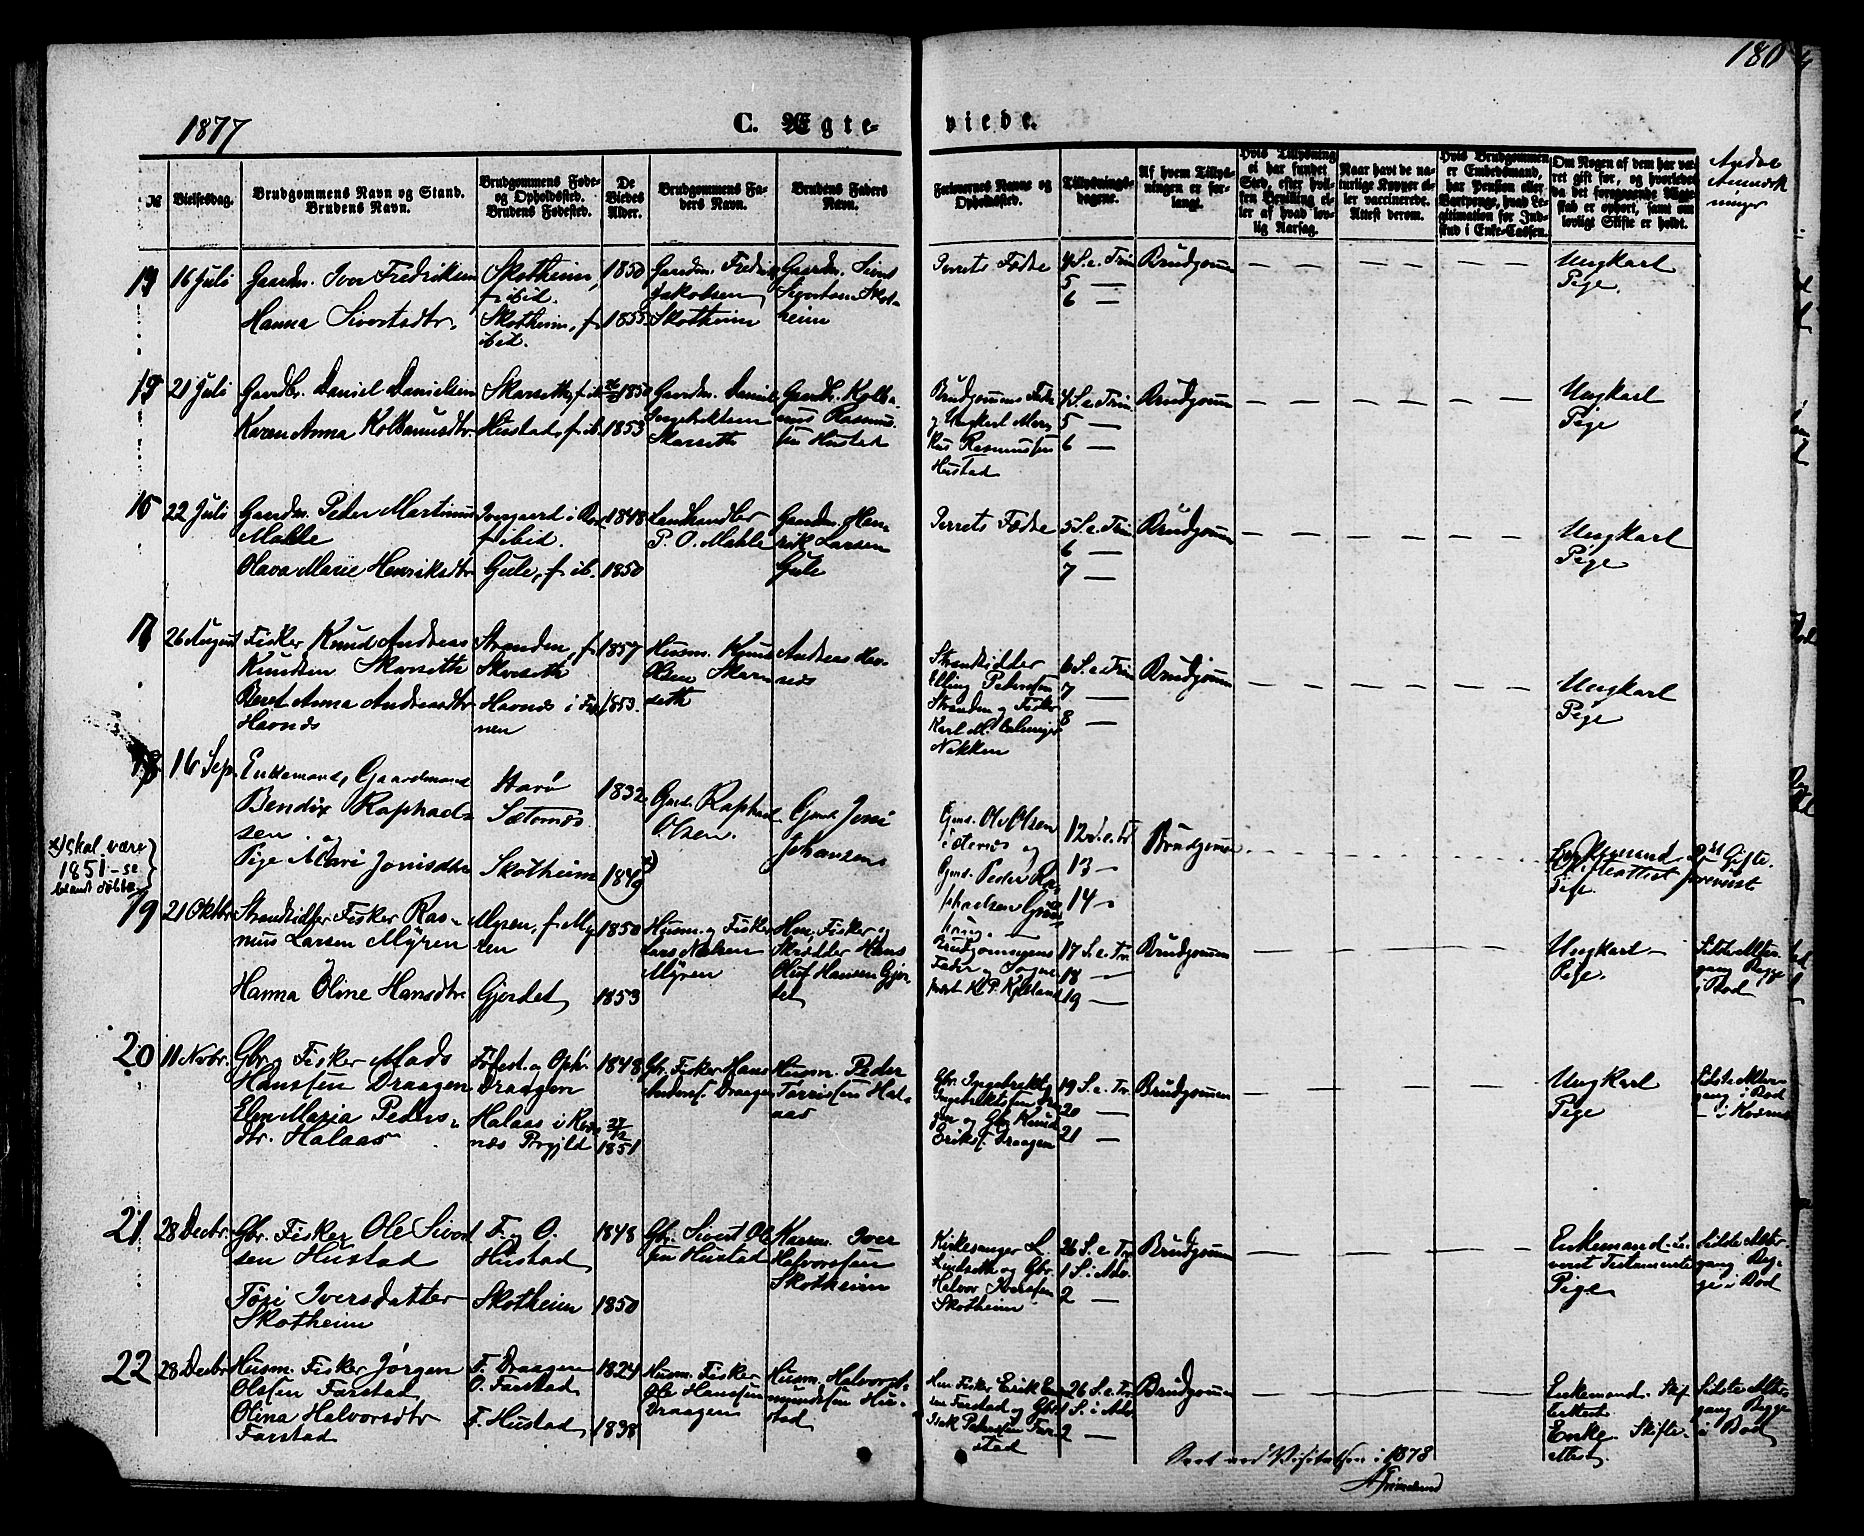 180
1877
C. Ægte-
viede.
№
Vielsesdag.
Brudgommens Navn og Stand.
Brudens Navn.
Brudgommens Føde-
og Opholdssted.
Brudens Fødested.
De
Viedes
Alder.
Brudgommens Fa-
ders Navn.
Brudens Faders
Navn.
Forlovernes Navne og
Opholdssted.
Tillysnings-
dagene.
Af hvem Tillys-
ningen er for-
langt.
Hvis Tillysning
ei har fundet
Sted, efter hvil-
ken Bevilling el-
ler af hvad lov-
lig Aarsag.
Naar havt de na-
turlige Kopper el-
ler vaccinerede.
Attest derom.
Hvis Brudgommen
er Embedsmand,
har Pension eller
Vartpenge, hvad Le-
gitimation for Ind-
skud i Enke-Cassen.
Om Nogen af dem har væ-
ret gift før, og hvorledes
da det foregaaende Ægte-
skab er ophørt, samt om
lovligt Skifte er holdt.
Andre
Anmærk
ninger
16 Juli
Gaardm. Iver Fredriksen
Hanna Sivertsdtr.
Skotheim,
f. ibid.
Skotheim, f.
ibid.
1850
1855
Gaardm. Fredrik
Jakobsen
Skotheim
Gaardm. Sivert
Sivertsen Skot-
heim
Parrets Fædre
4 S. e. Trin
5 —
6 —
Brudgom
Ungkarl
Pige.
21 Juli
Gaardbr. Daniel Danielsen
Karen Anna Kolbanusdtr.
Skarseth, f. ib.
Hustad, f. ib.
1850
1853
Gaardm. Daniel
Ingebriktsen
Skarseth
Gaardb. Kolba-
nus Rasmus-
sen Hustad
Brudgommens Fader
og Ungkarl Mar-
kus Rasmussen
Hustad
4 S. e. Trin
5 —
6 —
Brudgom
Ungkarl
Pige
22 Juli
Gaardm. Peder Martinus
Malle
Olava Marie Henriksdtr
f. ibid.
Gule, f. ib.
1848
1850
Landhandler
P. O. Mahle
Gaardm. Hen-
rik Larsen
Gule
Parrets Fædre
5 S. e. Trin
6 —
7 —
Brudgom
Ungkarl
Pige
26 August
Fisker Knud Andreas
Knudsen Skarseth
Beret Anna Andreasdtr
Havnæs
Stranden, f.
Skarseth
1857
1853.
Husm. Knud
Olsen Skar-
seth
Andreas Hav-
næs
Strandsidder
Elling Petersen
Stranden og Fisker
Nakken
6 S. e. Trin
7 —
8 —
Brudgom
Ungkarl
Pige
18
16 Sep.
Enkemand, Gaardmand
Bendix Raphael-
sen. og
Pige Mari Jonisdtr
Harø
Sæternæs
Skotheim
1832
1849 x)
x) skal være
1851 - se
blandt døbte
Gmd. Raphael
Olsen.
Gmd. Joni
Johansen
Gmd. Ole Olsen
Sæternæs og
Gmd. Peder Ra-
phaelsen
12 S. e. Tr.
13 —
14 —
Brudgom
Enkemand
Pige.
19
21 Oktbr
Strandsidder Fisker Ras-
mus Larsen Myren
Hanna Oline Hansdtr
Myren, f. My-
ren
Gjerdet
1850
1853
Husm. og Fisker
Lars Nielsen
Myren
Hm. Fisker og
Skrædder Hans
Oluf Hansen Gjer-
det
Brudgommens
Fader og Sogne-
præst
17 S. e. Tr.
18 —
19 —
Brudgommen
Ungkarl
Pige.
Sidste Alter-
gang Begge
i Bod
20
11 Novbr.
Gbr. og Fisker Mads
Hanssen Draagen
Elen Maria Peders-
dtr. Halaas
Fødest. og Oph.
Draagen
Halaas i Kor-
næs Prgjld
1848
27/12
1851
Gbr. Fisker Hans
Anderss. Draagen
Husm. Peder
Tarrissen Hal-
aas
Gbr. Ingebrikt
Ingebriktsen Draa-
gen og Gbr Knud
Erikss. Draagen
19 S. e. Tr.
20 —
21 —
Brudgommen
Ungkarl
Pige
Sidste Alter-
gang i Bod
21
28 Decbr.
Gbr. Fisker Ole Sivert
sen Hustad
Turi Iversdatter
Skotheim
F. og O.
Hustad
Skotheim
1848
1850
Gbr. Sivert Ole
sen Hustad
Kaarm. Iver
Halvorssen
Skotheim
Kirkesanger L.
Lindseth og Gbr.
Halvor Iverssen
Skotheim
26 S. e. Tr.
1 S. i Adv.
2 —
Brudgommen
Enkemand
Pige
Sidste Alter-
gang Beg-
ge i Bod
22
28 Decbr
Husm. Fisker Jørgen
Olssen Farstad
Olina Halvorsdtr
Farstad
F. Draagen
O. Farstad
F. Hustad
1824
1838
Husm. Fisker
Ole Hanssen
Draagen
Husm. Halvor
mundssen Hu-
stad
Hm. Fisker Erik
sen Farstad og Gbr.
Isak Pedersen Far-
stad
26 S. e. Tr.
1 S. i Adv.
2 —
Brudgommen
Enkemand. Skif-
teattest
Enke. Skifte-
attest
Sidste Alter-
gang Begge
i Bod
Seet ved Visitatsen i 1878